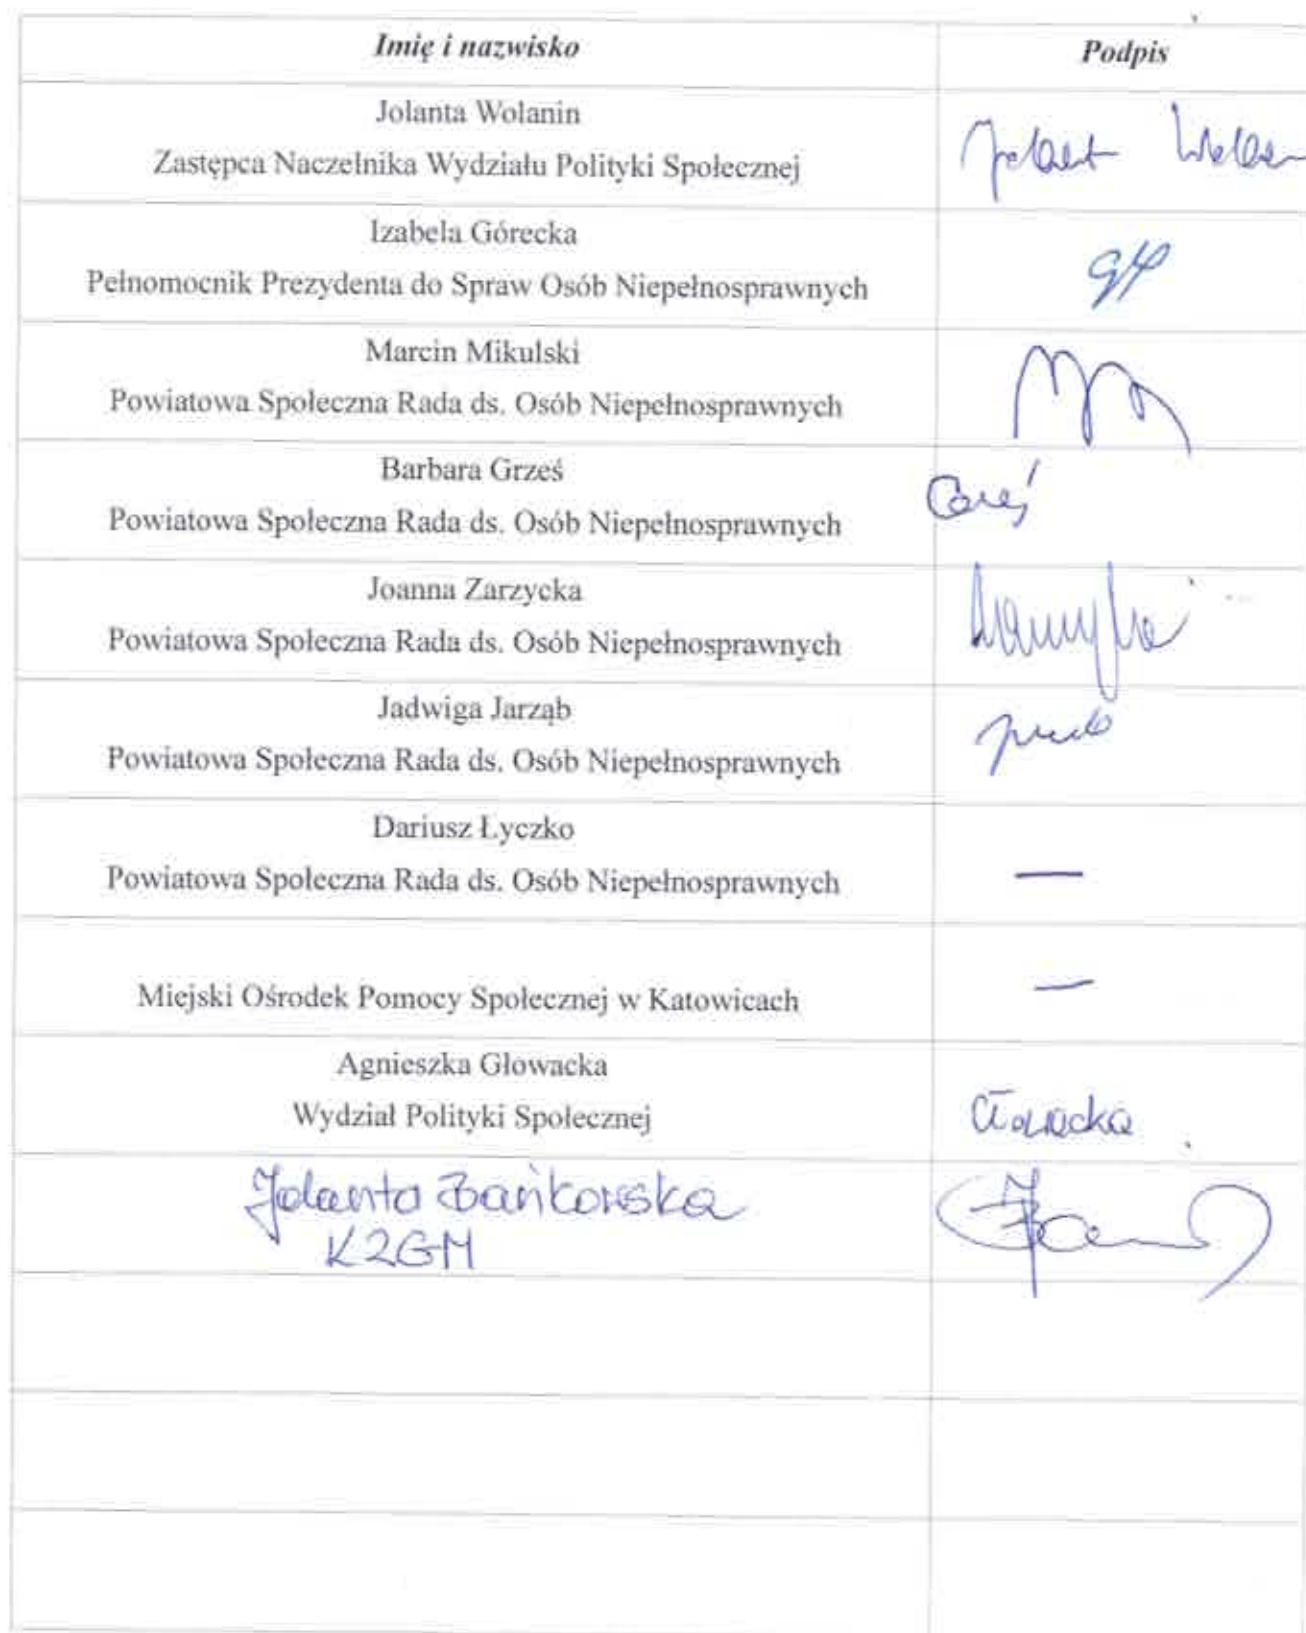 Imię i nazwisko
Podpis
Jolanta Wolanin
Zastępca Naczelnika Wydziału Polityki Społecznej
Izabela Górecka
Pełnomocnik Prezydenta do Spraw Osób Niepełnosprawnych
Marcin Mikulski
Powiatowa Społeczna Rada ds. Osób Niepełnosprawnych
Barbara Grześ
Powiatowa Społeczna Rada ds. Osób Niepełnosprawnych
Joanna Zarzycka
Powiatowa Społeczna Rada ds. Osób Niepełnosprawnych
Jadwiga Jarząb
Powiatowa Społeczna Rada ds. Osób Niepełnosprawnych
Dariusz Łyczko
Powiatowa Społeczna Rada ds. Osób Niepełnosprawnych
—
Miejski Ośrodek Pomocy Społecznej w Katowicach
—
Agnieszka Głowacka
Wydział Polityki Społecznej
Głowacka
Jolanta Bańkowska
KZGM